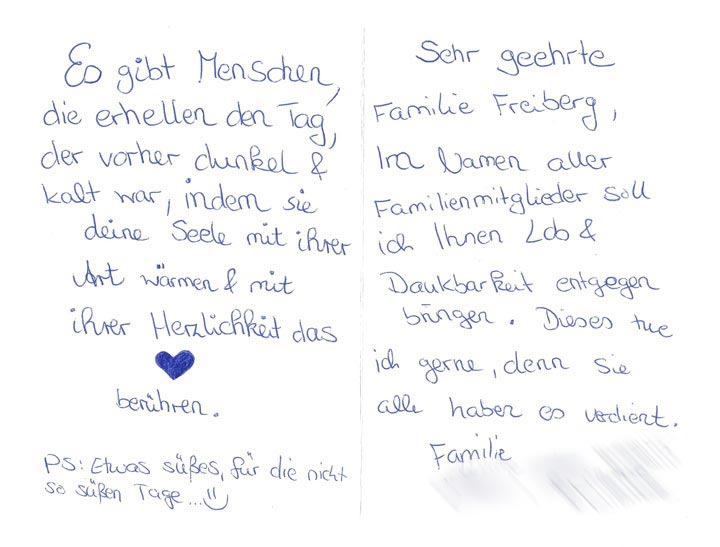 Es gibt Menschen,
die erhellen den Tag,
der vorher dunkel &
kalt war, indem sie
deine Seele mit ihrer
Art wärmen & mit
ihrer Herzlichkeit das
berühren.
PS: Etwas süßes, für die nicht
so süßen Tage...
Sehr geehrte
Familie Freiberg,
Im Namen aller
Familienmitglieder soll
ich Ihnen Lob &
Dankbarkeit entgegen
bringen. Dieses tue
ich gerne, denn Sie
alle haben es verdient.
Familie